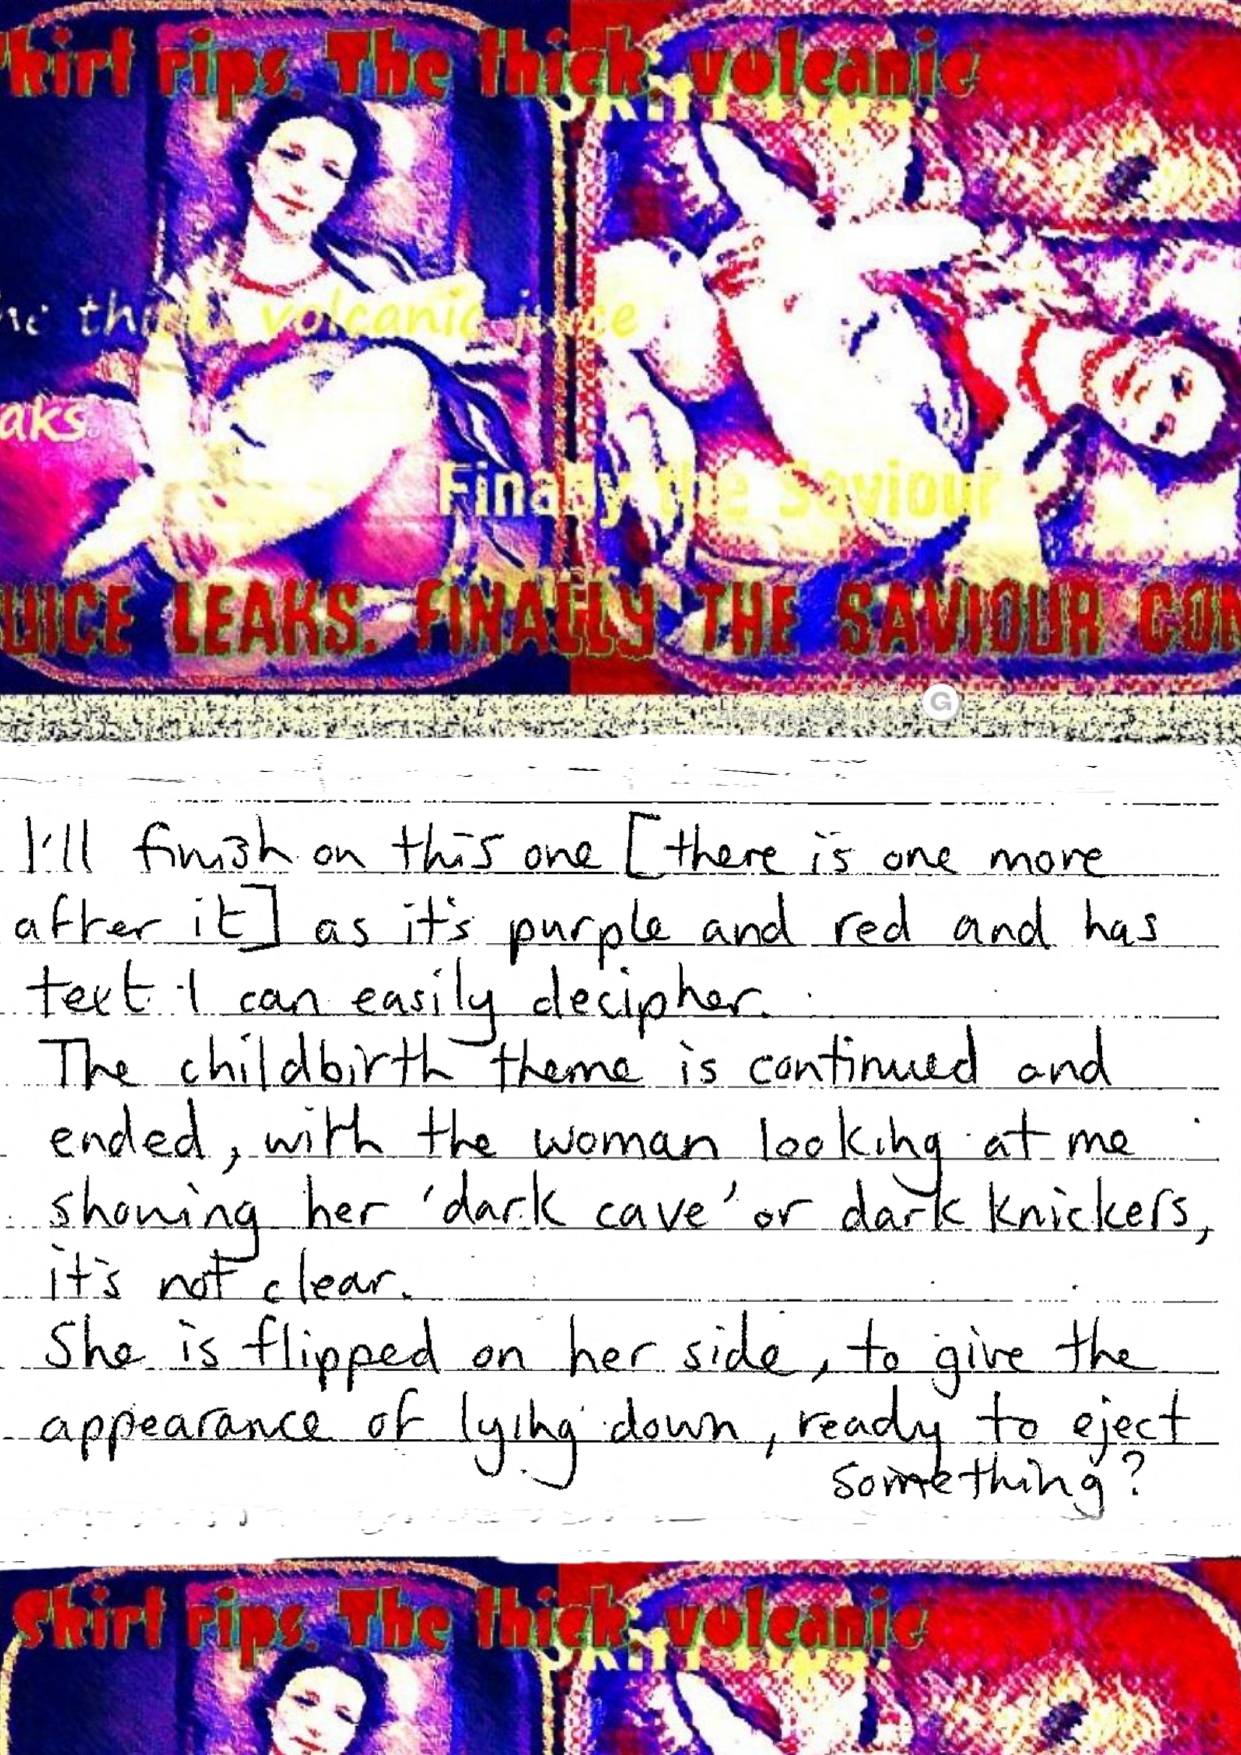 Skirt rips. The thick, volcanic
Skirt rips.
the thick, volcanic juice
aks.
Finally the Saviour
UICE LEAKS. FINALLY THE SAVIOUR COM
G
I'll finish on this one [there is one more
after it] as it's purple and red and has
text I can easily decipher.
The childbirth theme is continued and
ended, with the woman looking at me
showing her 'dark cave' or dark knickers,
it's not clear.
She is flipped on her side, to give the
appearance of lying down, ready to eject
something?
Skirt rips. The thick, volcanic
Skirt rips.